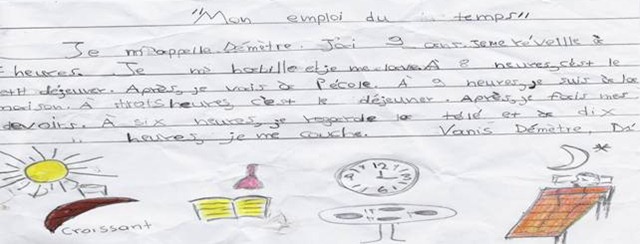 "Mon emploi du temps"
Je m'appelle Démètre. J'ai 9 ans. Je me réveille à
heures. Je m' habille et je me lave. À 8 heures, c'est le
petit déjeuner. Après, je vais à l'école. À 9 heures, je suis de la
maison. À trois heures c'est le déjeuner. Après, je fais mes
devoirs. À six heures, je regarde la télé et à dix
heures, je me couche. Vanis Démètre,
12
3
6
9
Croissant